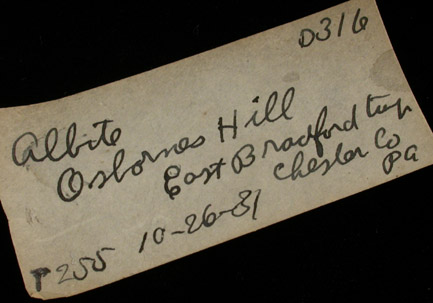 D316
Albite
Osbornes Hill
East Bradford twp
Chester Co
Pa
P255 10-26-81